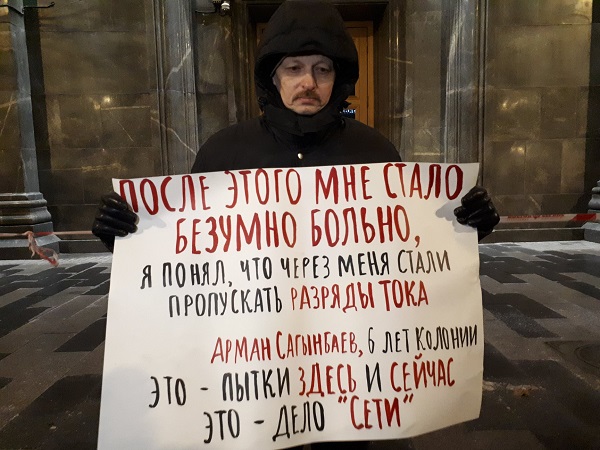 ПОСЛЕ ЭТОГО МНЕ СТАЛО
БЕЗУМНО БОЛЬНО,
Я ПОНЯЛ, ЧТО ЧЕРЕЗ МЕНЯ СТАЛИ
ПРОПУСКАТЬ РАЗРЯДЫ ТОКА
АРМАН САГЫНБАЕВ, 6 ЛЕТ КОЛОНИИ
ЭТО - ПЫТКИ ЗДЕСЬ И СЕЙЧАС
ЭТО - ДЕЛО "СЕТИ"